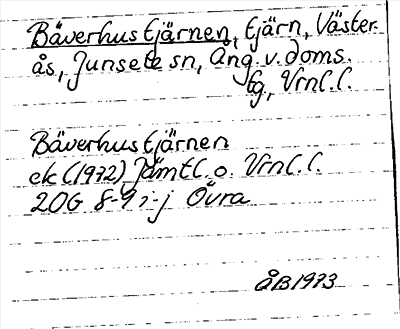 Bäverhustjärnen, tjärn, Väster-
ås, Junsele sn, Ång. v. doms.
tg, Vrnl. l.
Bäverhustjärnen
ek (1972) Jämtl. o. Vrnl. l.
20G 8-9 i-j Övra
ÅB 1973